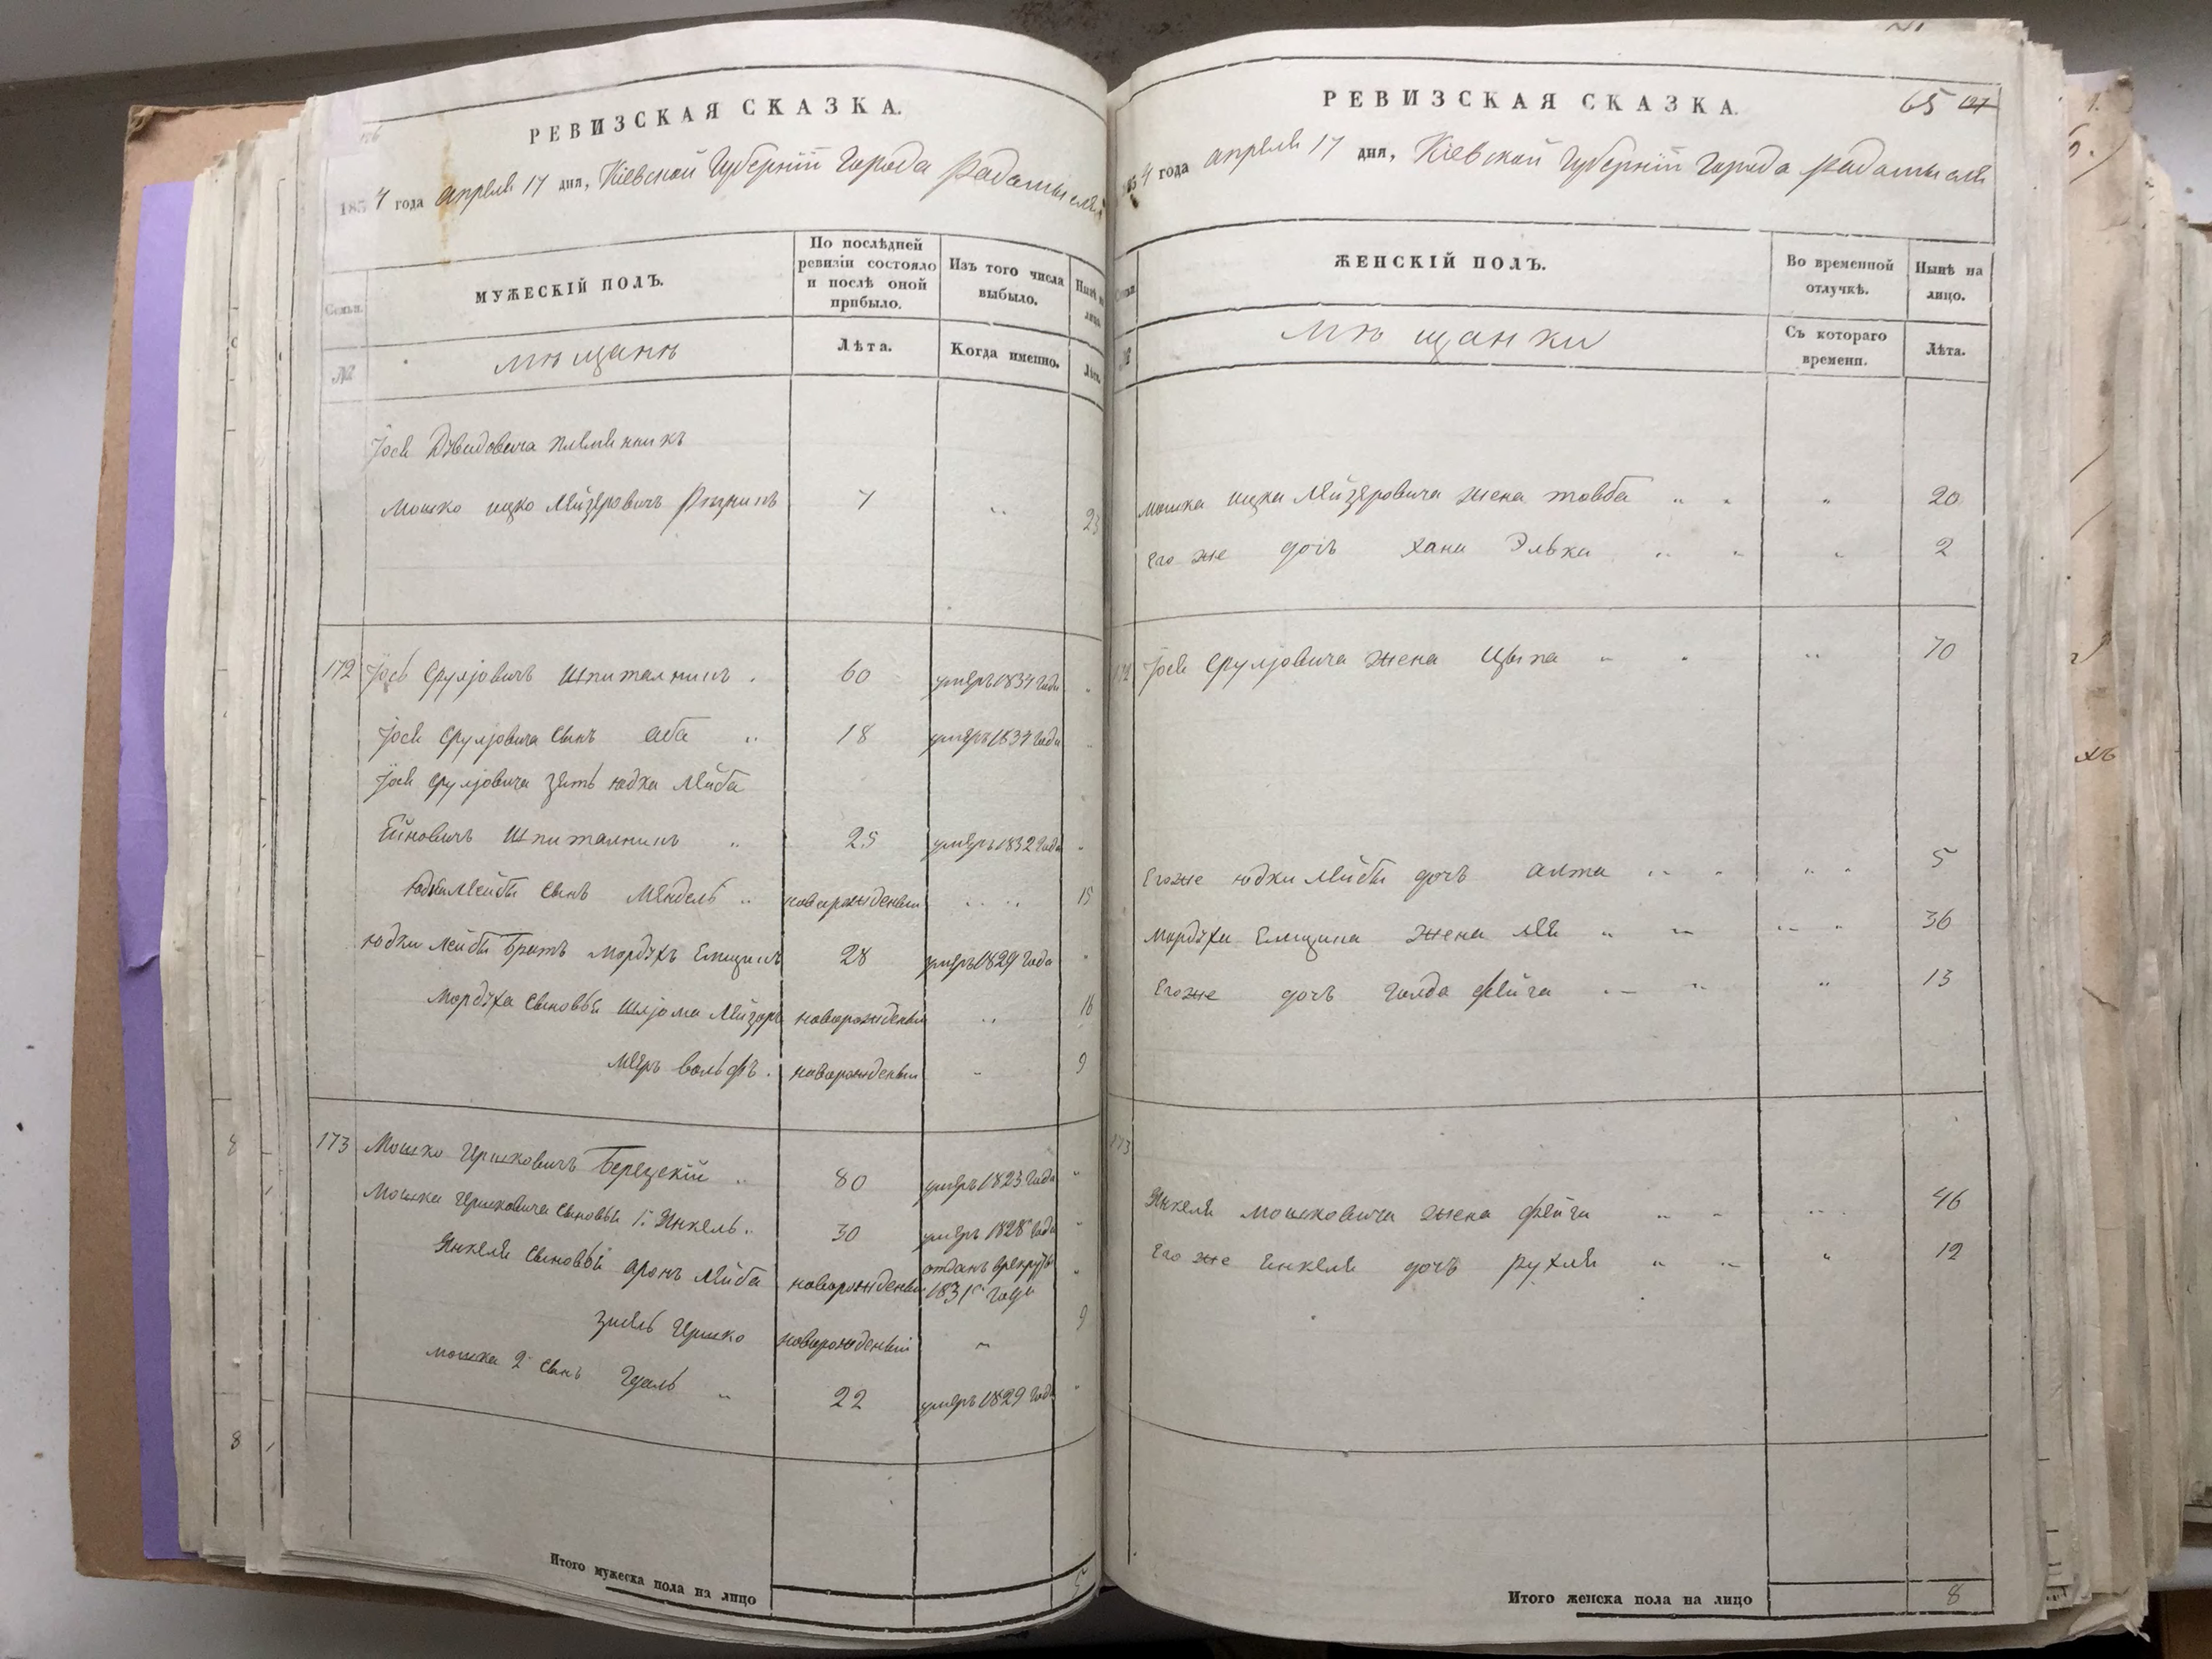 РЕВИЗСКАЯ СКАЗКА.
1834 года апреля 17 дня, Кіевской Губерніи города Радомысля
Семьи.
МУЖЕСКІЙ ПОЛЪ.
По послѣдней ревизіи состояло и послѣ оной прибыло.
Изъ того числа выбыло.
Нынѣ на лицо.
№
мѣщанъ
Лѣта.
Когда именно.
Лѣта.
Іося Дувидовича племянникъ
Мошко ицко Лейзеровичъ 7 " 23
172 Іось Срулјовичъ Шпиталникъ 60 умеръ 1834 года "
Іося Срулјовича сынъ Аба " 18 умеръ 1834 года "
Іося Срулјовича зять юдка Лейба
Шпиталникъ " 25 умеръ 1832 года "
Юдки Лейбы сынъ Мендель " новорожденый " " 15
юдки Лейбы братъ Мордухъ 28 умеръ 1829 года "
Мордуха сыновья Шлјома Лейзоръ новорожденый " 16
Меръ вольфъ новорожденый " 9
173 Мошко Гершковичъ Березскій " 80 умеръ 1823 года "
Мошка Гершковича сыновья 1й Янкель " 30 умеръ 1828 года "
Янкеля сыновья аронъ Лейба новорожденый отданъ врекруты 1831го года "
Гершко новорожденый " 9
мошка 2й сынъ " 22 умеръ 1829 года "
Итого мужеска пола на лицо 5
РЕВИЗСКАЯ СКАЗКА.
65
1834 года апреля 17 дня, Кіевской Губерніи города Радомысля
Семьи.
ЖЕНСКІЙ ПОЛЪ.
Во временной отлучкѣ.
Нынѣ на лицо.
№
мѣщанки
Съ котораго времени.
Лѣта.
мошка ицки Лейзеровича жена товба " " " 20
Его же дочь хана Элька " " " 2
172 Іося Срулјовича жена Цыпа " " " 70
Его же юдки Лейбы дочь алта " " " " 5
мордуха жена Лея " " " " 36
Его же дочь голда фейга " " " 13
173
Янкеля мошковича жена фейга " " " 46
Его же Янкеля дочь рухля " " " 12
Итого женска пола на лицо 8